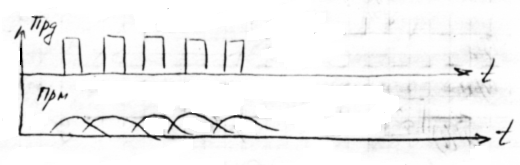 Прд
t
Прм
t